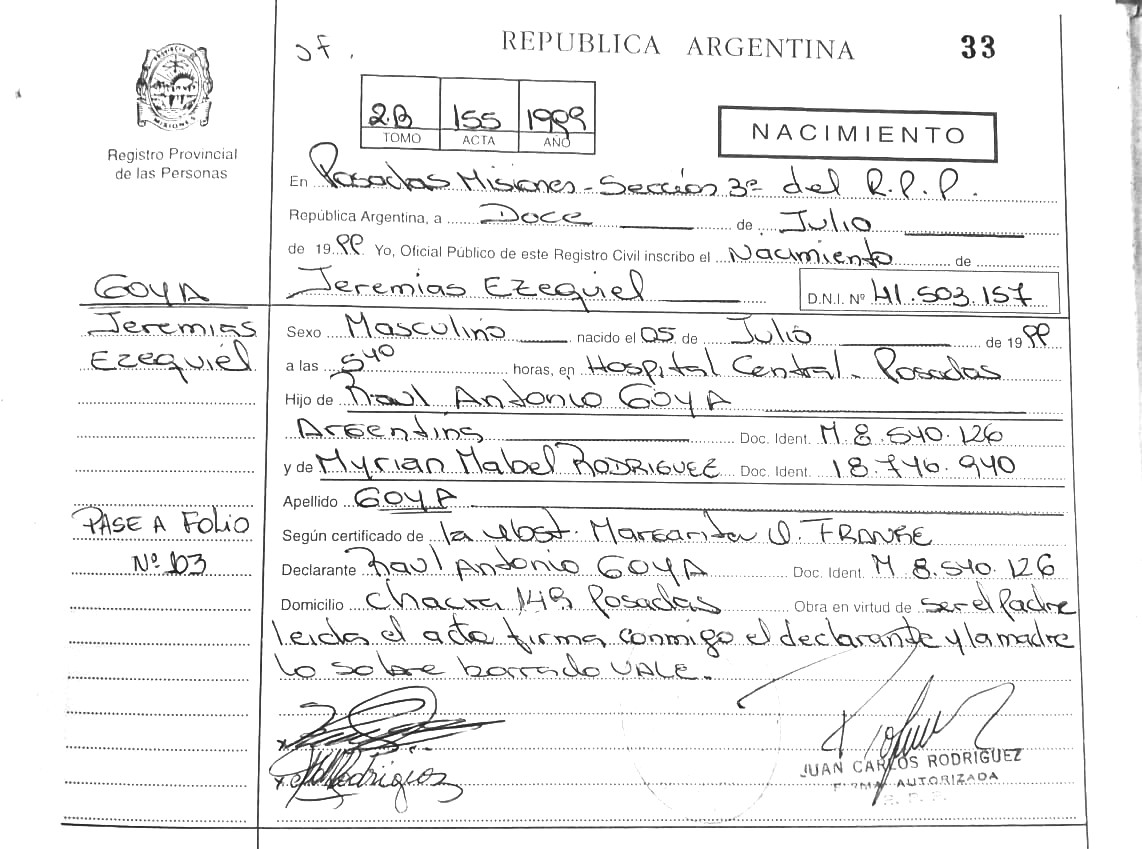 REPUBLICA ARGENTINA
33
2B 155 1999
TOMO ACTA AÑO
NACIMIENTO
PROVINCIA DE MISIONES
Registro Provincial
de las Personas
En Posadas Misiones - Sección 3ª del R.P.P.
República Argentina, a Doce de Julio
de 1999 Yo, Oficial Público de este Registro Civil inscribo el Nacimiento de
Jeremias Ezequiel D.N.I. Nº 41.503.157
GOYA
Jeremias
Ezequiel
Sexo Masculino nacido el 05 de Julio de 1999
a las 5⁴⁰ horas, en Hospital Central - Posadas
Hijo de Raul Antonio GOYA
Argentino Doc. Ident. M 8.540.126
y de Myrian Mabel RODRIGUEZ Doc. Ident. 18.746.940
Apellido GOYA
PASE A FOLIO
Nº 103
Según certificado de la Obst. Margarita
Declarante Raul Antonio GOYA Doc. Ident. M 8.540.126
Domicilio Chacra 149 Posadas Obra en virtud de ser el Padre
leida el acta firma conmigo el declarante y la madre
lo sobre borrado VALE.
Rodriguez
JUAN CARLOS RODRIGUEZ
FIRMA AUTORIZADA